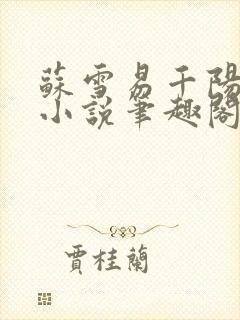 蘇雪易千陽
小說筆趣閣
賈桂蘭